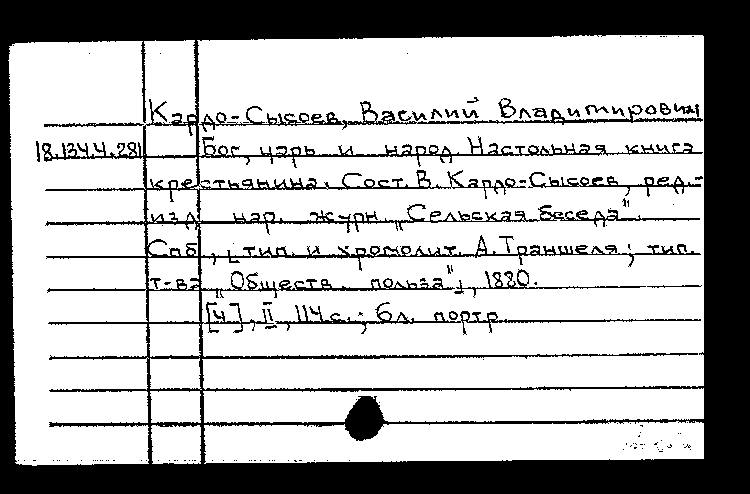 Кардо-Сысоев, Василий Владимирович
18.134.4.281 Бог, царь и народ. Настольная книга
крестьянина. Сост. В. Кардо-Сысоев, ред.-
изд. нар. журн. „Сельская беседа".
Спб., [тип. и хромолит. А. Траншеля; тип.
т-ва „Обществ. польза"], 1880.
[4], II, 114 с.; 6 л. портр.